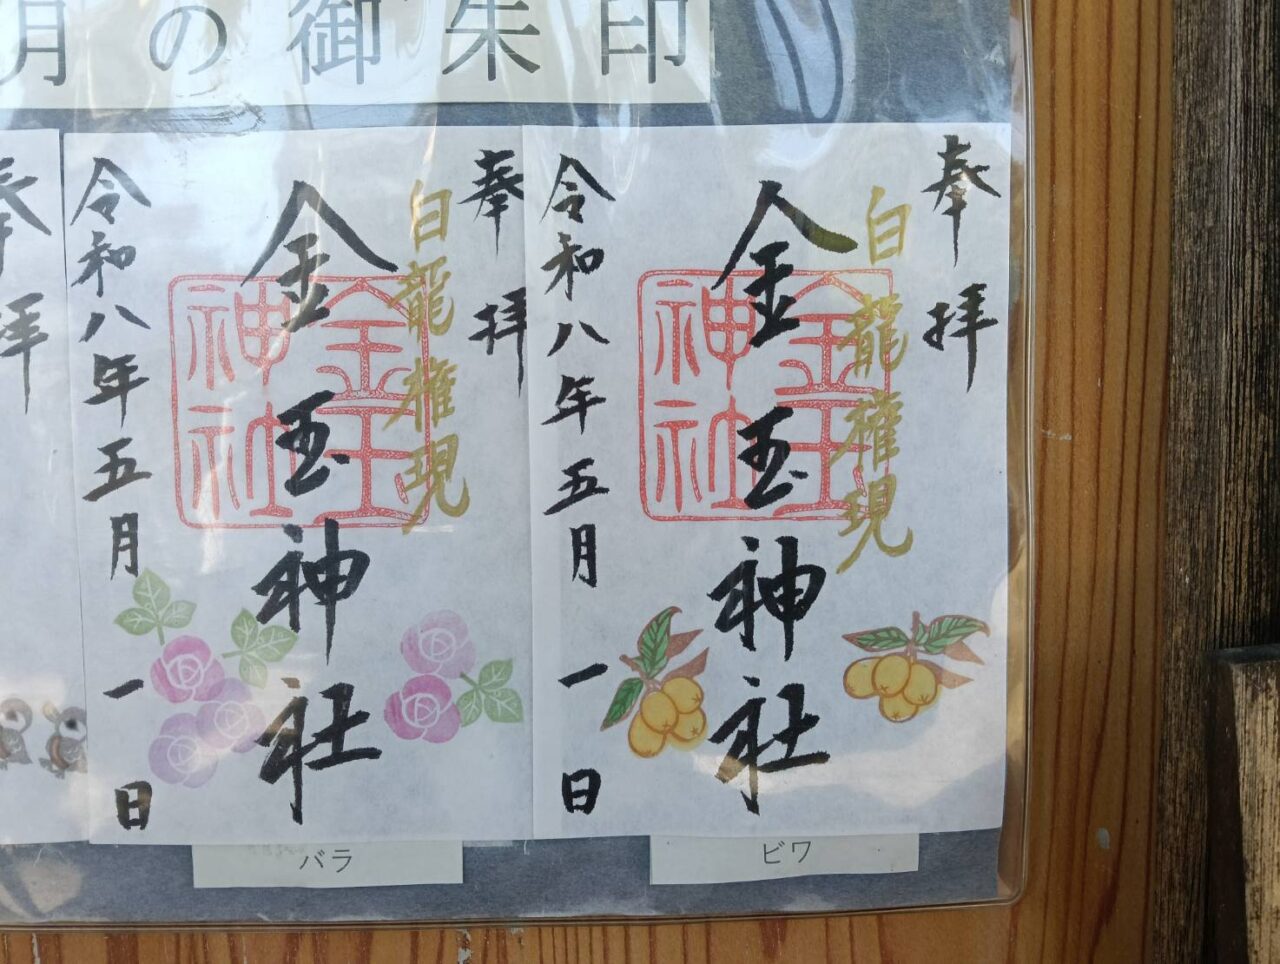 月の御朱印
奉拝
白龍権現
金玉神社
金玉神社
令和八年五月一日
ビワ
奉拝
白龍権現
金玉神社
金玉神社
令和八年五月一日
バラ
奉拝